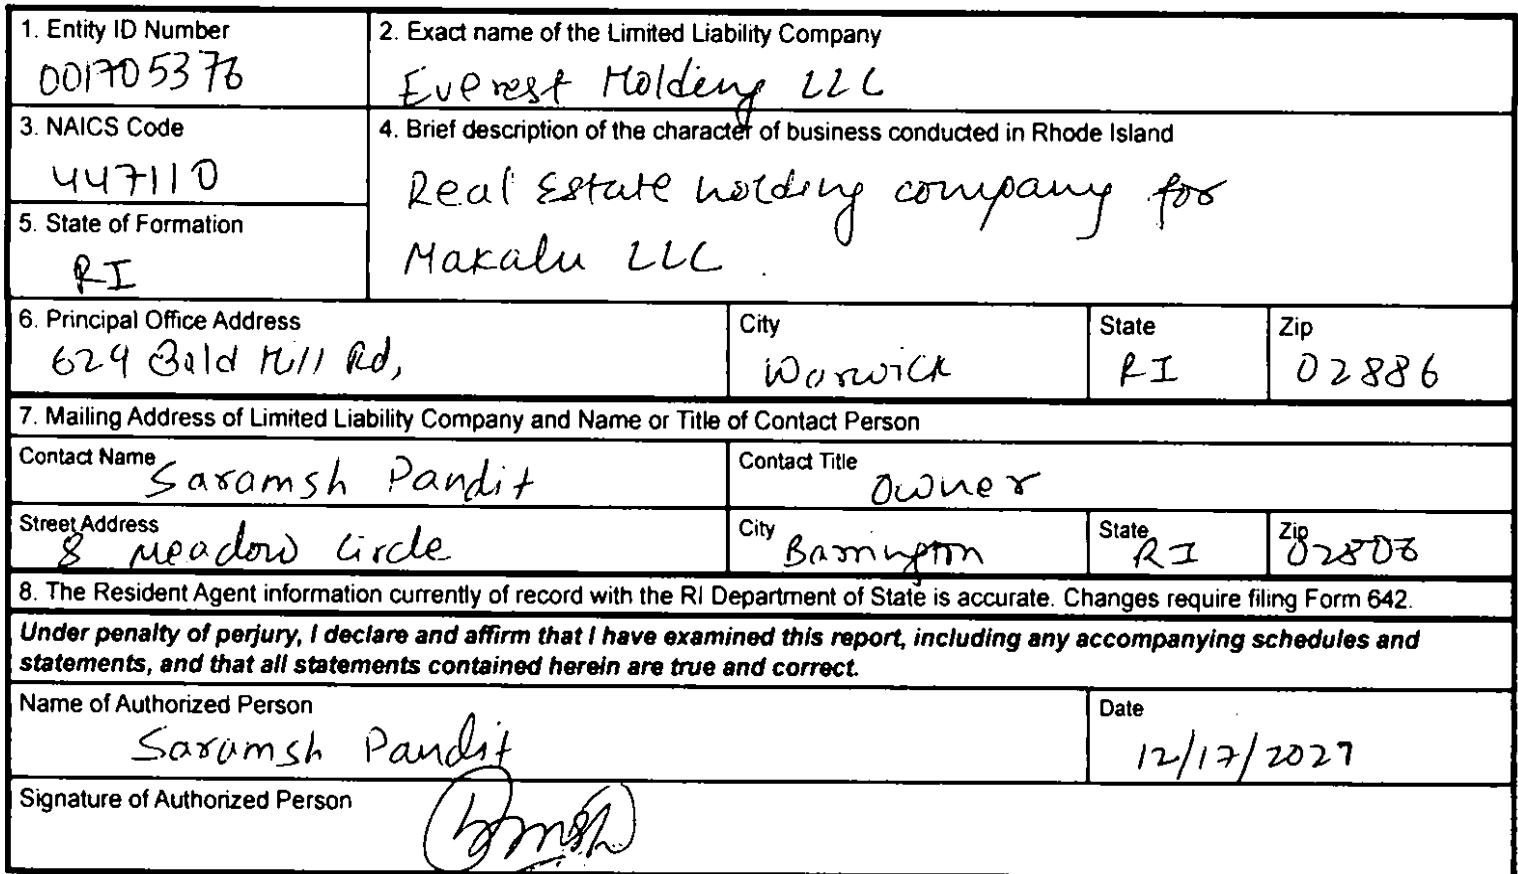 1. Entity ID Number
001705376
2. Exact name of the Limited Liability Company
Everest Holding LLC
3. NAICS Code
447110
4. Brief description of the character of business conducted in Rhode Island
Real Estate holding company for
Makalu LLC.
5. State of Formation
RI
6. Principal Office Address
629 Bald Hill Rd,
City
Warwick
State
RI
Zip
02886
7. Mailing Address of Limited Liability Company and Name or Title of Contact Person
Contact Name
Saramsh Pandit
Contact Title
Owner
Street Address
8 Meadow Circle
City
Barrington
State
RI
Zip
02806
8. The Resident Agent information currently of record with the RI Department of State is accurate. Changes require filing Form 642.
Under penalty of perjury, I declare and affirm that I have examined this report, including any accompanying schedules and
statements, and that all statements contained herein are true and correct.
Name of Authorized Person
Saramsh Pandit
Date
12/17/2021
Signature of Authorized Person